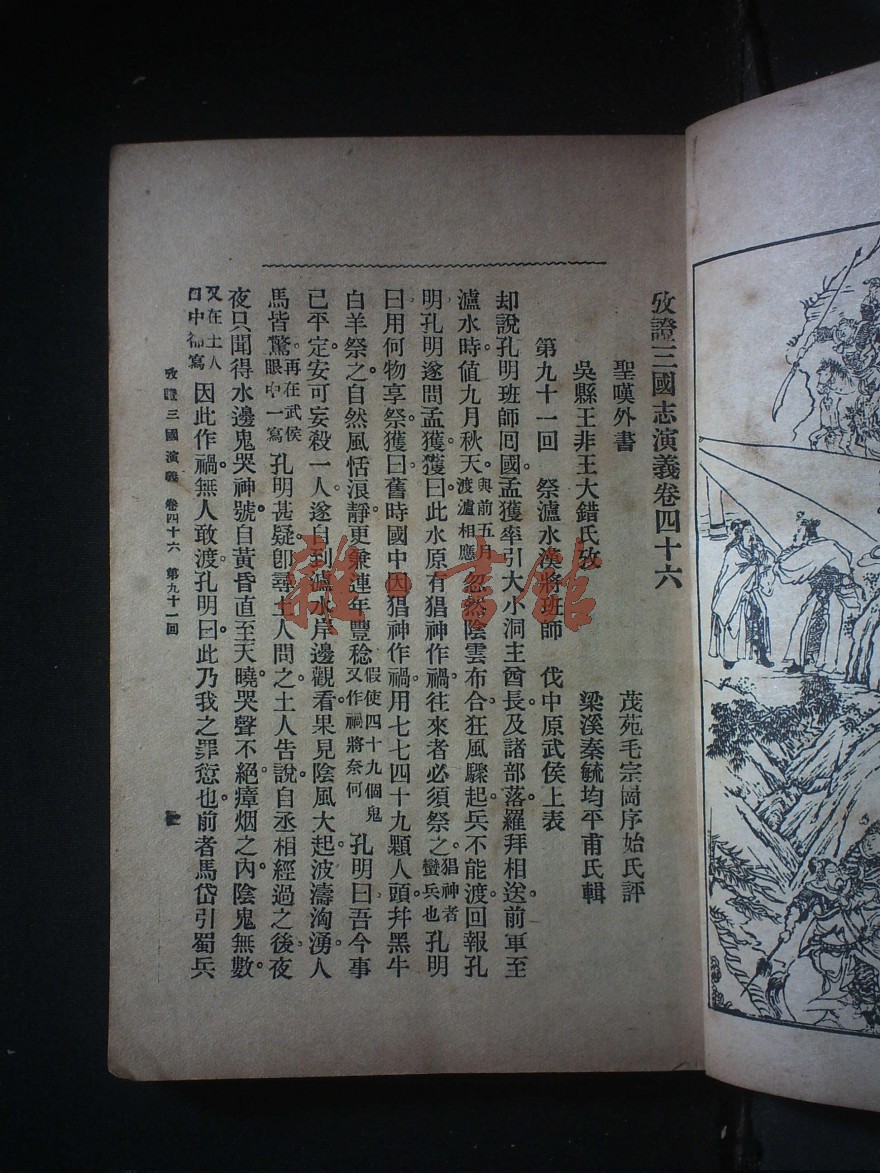 攷證三國志演義卷四十六
聖嘆外書 茂苑毛宗崗序始氏評
吳縣王非王大錯氏攷 梁溪秦毓均平甫氏輯
第九十一回 祭瀘水漢將班師 伐中原武侯上表
却說孔明班師回國。孟獲率引大小洞主酋長及諸部落羅拜相送。前軍至
瀘水。時值九月秋天。與前五月渡瀘相應 忽然陰雲布合。狂風驟起。兵不能渡。回報孔
明。孔明遂問孟獲。獲曰。此水原有猖神作禍。往來者必須祭之。猖神者蠻兵也 孔明
曰。用何物享祭。獲曰。舊時國中因猖神作禍。用七七四十九顆人頭。幷黑牛
白羊祭之。自然風恬浪靜。更兼連年豐稔。假使四十九個鬼又作禍將奈何 孔明曰。吾今事
已平定。安可妄殺一人。遂自到瀘水岸邊觀看。果見陰風大起。波濤洶湧。人
馬皆驚。再在武侯眼中一寫 孔明甚疑。卽尋土人問之。土人告說。自丞相經過之後。夜
夜只聞得水邊鬼哭神號。自黃昏直至天曉。哭聲不絕。瘴烟之內。陰鬼無數。
又在土人口中補寫 因此作禍。無人敢渡。孔明曰。此乃我之罪愆也。前者馬岱引蜀兵
攷證三國演義 卷四十六 第九十一回
雜·書館